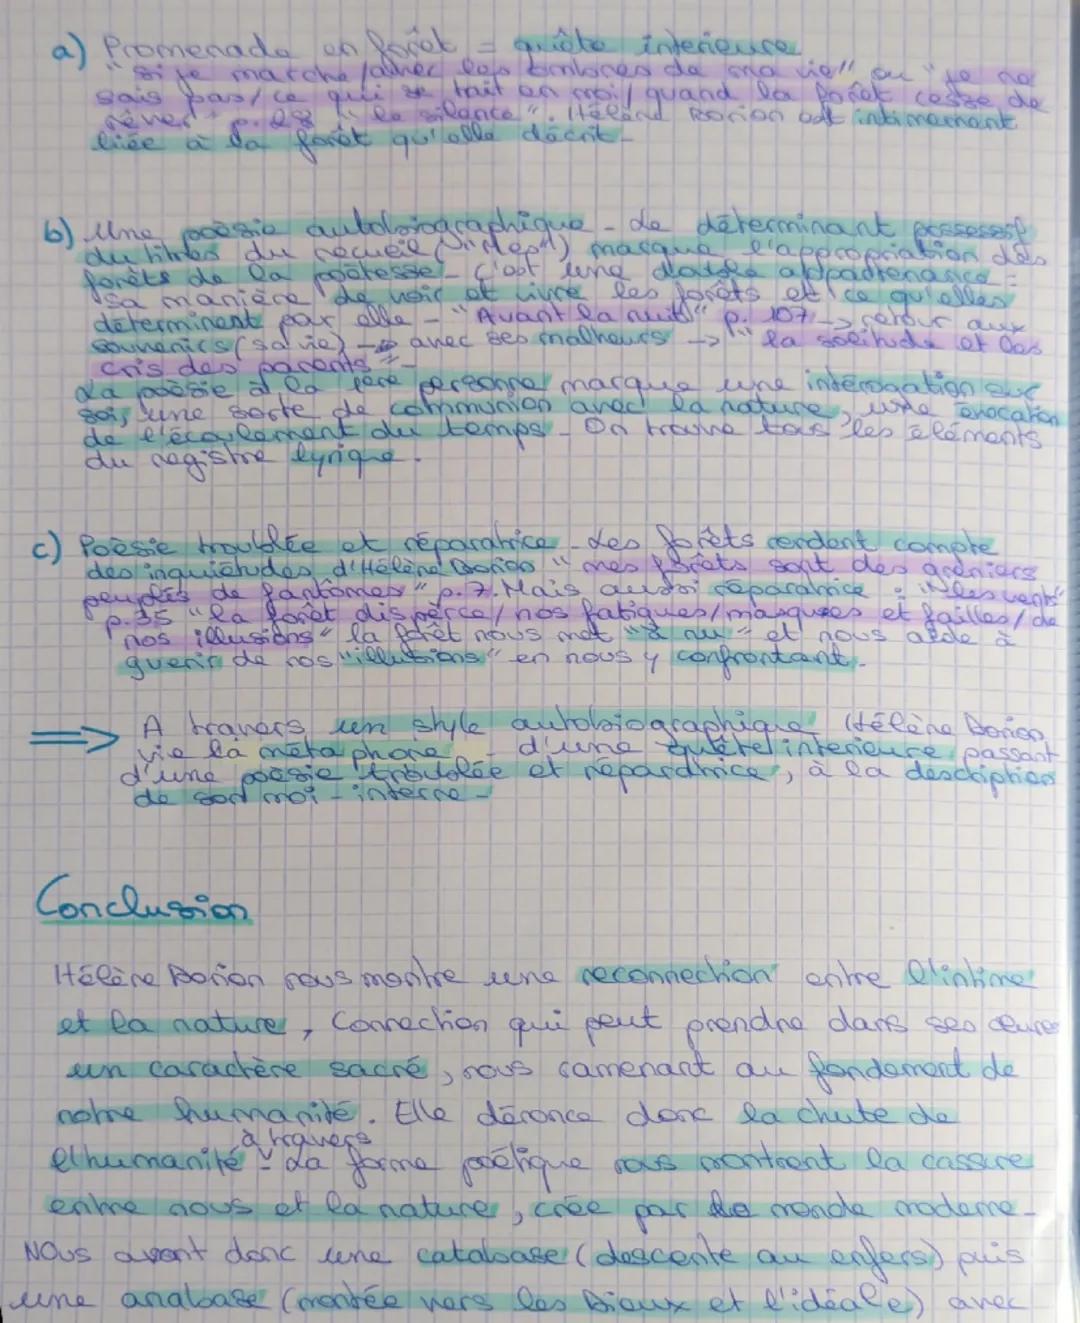 a) Promenade en forêt = quête interieure
"si je marche/avec les ombres de ma vie" ou "je ne
sais pas/ce qui se tait en moi/quand la forêt cesse de
rêver" p.28 "le silence". Hélène Dorion est intimement
liée à la forêt qu'elle décrit.
b) Une poésie autobiographique - Le déterminant possessif
du titre du recueil ("mes") marque l'appropriation des
forêts de la poétesse - C'est une double appartenance =
Sa manière de voir et vivre les forêts et ce qu'elles
déterminent par elle - "Avant la nuit" p. 107 -> retour aux
souvenirs (sa vie) -> avec ses malheurs -> "la solitude et les
cris des parents" -
La poésie à la 1ère personne marque une interogation sur
soi, une sorte de communion avec la nature, une évocation
de l'écoulement du temps - On trouve tous les éléments
du registre lyrique.
c) Poésie troublée et réparatrice - Les forêts rendent compte
des inquiétudes d'Hélène Dorion "mes forêts sont des greniers
peuplés de fantômes" p.7. Mais aussi réparatrice : "les vents"
p.35 "la forêt disperce/nos fatigues/masques et failles/de
nos illusions" la forêt nous met "à nu" et nous aide à
guerir de nos "illusions" en nous y confrontant.
=> A travers un style autobiographique Hélène Dorion
vie la métaphore d'une quête interieure passant
d'une poésie troublée et réparatrice, à la description
de son moi-interne -
Conclusion
Hélène Dorion nous montre une reconnection entre l'intime
et la nature, Connection qui peut prendre dans ses œuvres
un caractère sacré, nous ramenant au fondement de
notre humanité. Elle dénonce donc la chute de
à travers
l'humanité - La forme poétique nous montrent la cassure
entre nous et la nature, crée par le monde moderne -
Nous avont donc une catabase (descente au enfers) puis
une anabase (montée vers les Dieux et l'idéale) avec